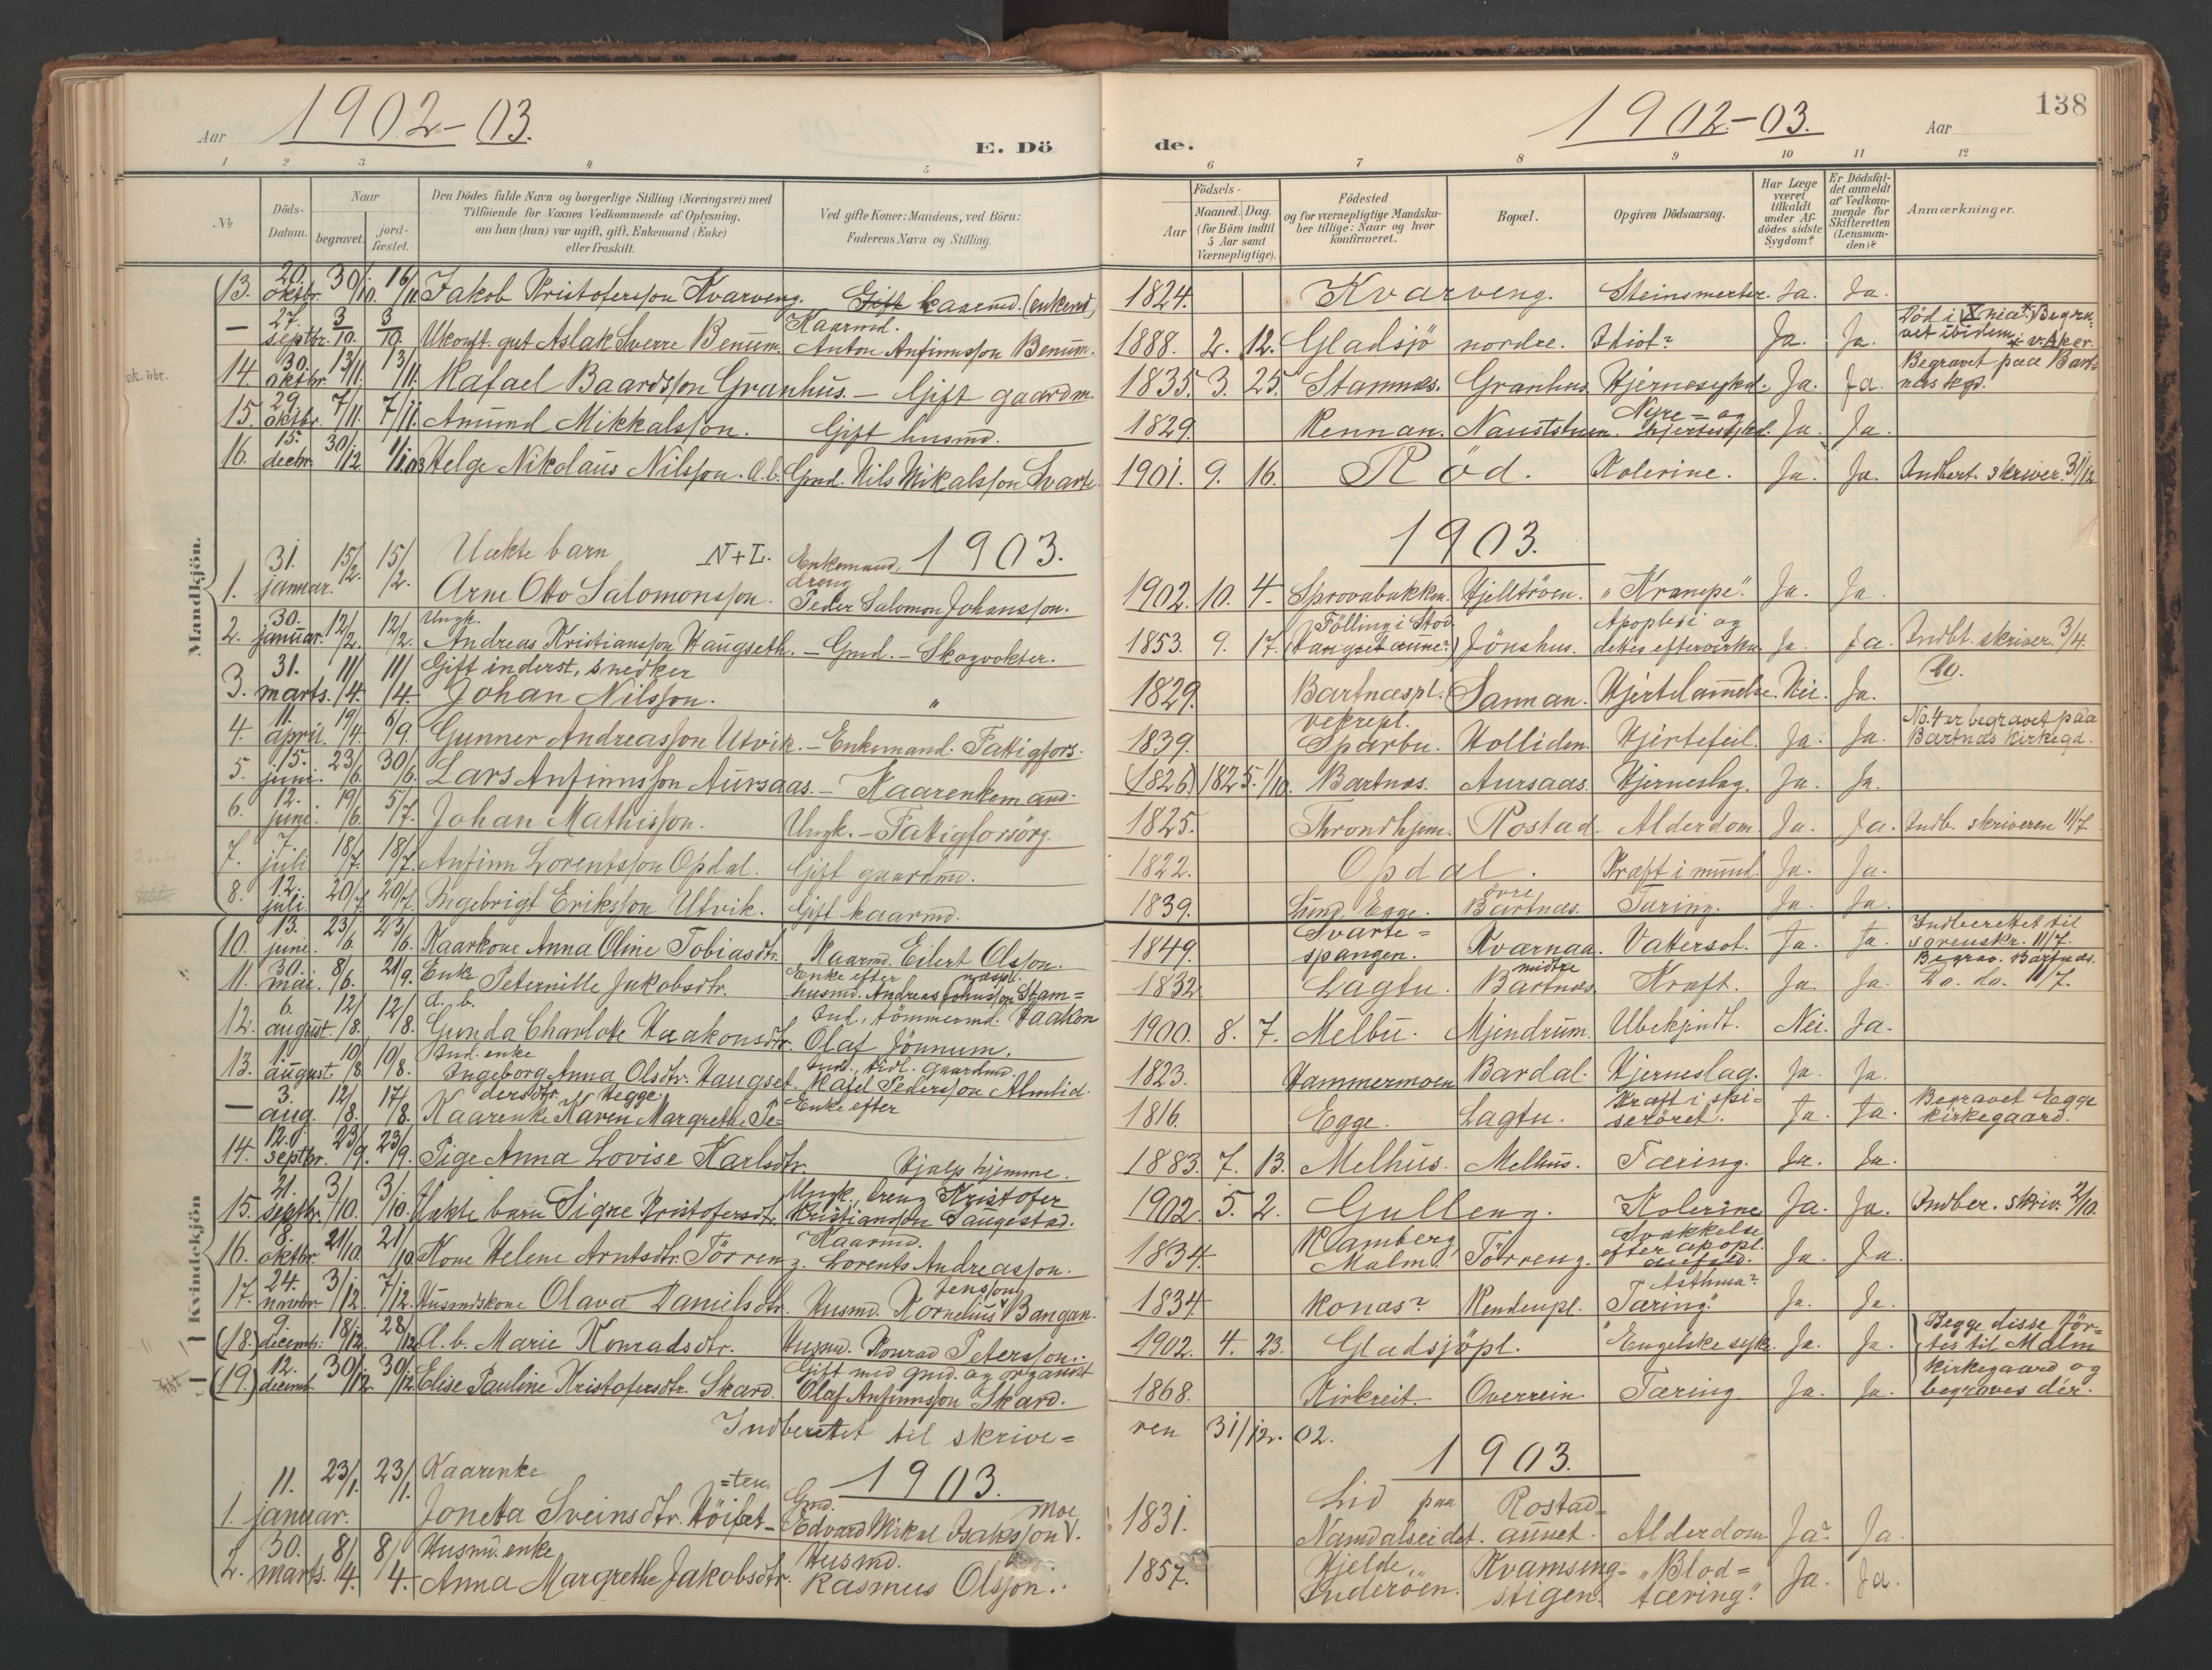 138
Aar 1902-03.
E. Döde.
1902-03. Aar
1 2 3 4 5 6 7 8 9 10 11 12
No
Döds-Datum.
Naar
begravet.
jord-fæstet.
Den Dödes fulde Navn og borgerlige Stilling (Næringsvei) med
Tilföiende for Voxnes Vedkommende af Oplysning,
om han (hun) var ugift, gift, Enkemand (Enke)
eller fraskilt.
Ved gifte Koner: Mandens, ved Börn:
Faderens Navn og Stilling.
Födsels-
Aar
Maaned. Dag.
(for Börn indtil
5 Aar samt
Værnepligtige).
Födested
og for værnepligtige Mandska-
ber tillige: Naar og hvor
konfirmeret.
Bopæl.
Opgiven Dödsaarsag.
Har Læge
været
tilkaldt
under Af-
dödes sidste
Sygdom?
Er Dödsfal-
det anmeldt
af Vedkom-
mende for
Skifteretten
(Lensman-
den)?
Anmærkninger.
Mandkjön.
13. 20. oktbr. 30/10. 16/11. Jakob Kristofersson Kvarveng. Gift kaarmd. (enkemd) 1824. Kvarveng. Steinsmerter. Ja. Ja.
— 27. septbr. 3/10. 3/10. Ukonf. gut Aslak Sverre Benum. Kaarmd. Anton Anfinnsson Benum. 1888. 2. 12. Gladsjö nordre. Idiot? Ja. Ja. Död i Xnia*. Begra-
vet ibidem. * v. Aker.
14. 30. oktbr. 13/11. 13/11. Rafael Baardsson Granhus. — Gift gaardm. 1835. 3. 25. Stamnes. Granhus. Hjernesykd. Ja. Ja. Begravet paa Bart-
næs kgd.
15. 29. oktbr. 7/11. 7/11. Amund Mikkalsson. Gift husmd. 1829. Rennan. Nauststuen. Nyre- og
hjertesykd. Ja. Ja.
16. 15. decbr. 30/12 1/1.03 Helge Nikolaus Nilsson. a.b. Gmd. Nils Mikalsson Svarte. 1901. 9. 16. Röd. Kolerine. Ja. Ja. Indbert. skriver. 31/12
1903. 1903.
1. 31. januar. 15/2. 15/2. Uækte barn N+L.
Arne Otto Salomonsson. Enkemand, dreng
Peder Salomon Johansson. 1902. 10. 4. Sprovabakken. Hjelltröen. "Krampe". Ja. Ja.
2. 30. januar. 12/2. 12/2. Ungk.
Andreas Kristiansson Haugseth. — Gmd. — Skogvokter. 1853. 9. 17. Fölling i Stod Jönshus. Apoplexi og
dets eftervirkn. Ja. Ja. Indbt. skriver. 3/4.
3. 31. marts. 11/4. 11/4. Gift inderst, snedker
Johan Nilsson. " 1829. Bartnæspl. Sannan. Hjertelammelse. Nei. Ja. Do.
4. 11. april. 19/4. 6/9. Gunner Andreasson Utvik. — Enkemand. Fattigfors. 1839. Sparbu. Holliden. Hjertefeil. Ja. Ja. No. 4 er begravet paa
Bartnæs kirkegd.
5. 15. juni. 23/6. 30/6. Lars Anfinnsson Aursaas. — Kaarenkemand. (1826) 1825. 1/10. Bartnæs. Aursaas. Hjerneslag. Ja. Ja.
6. 12. juni. 19/6. 5/7. Johan Mathisson. Ungk. — Fattigforsörg. 1825. Throndhjem. Rostad. Alderdom. Ja. Ja. Indb. skriveren 11/7
7. 7. juli 18/7. 18/7. Anfinn Lorentsson Opdal. Gift gaardmd. 1822. Opdal. Kræft i mund. Ja. Ja.
8. 12. juli 20/7. 20/7. Ingebrigt Eriksson Utvik. Gift kaarmd. 1839. Egge. övre
Bartnæs. Tæring. Ja. Ja.
Kvindekjön
10. 13. juni. 23/6. 23/6. Kaarkone Anna Oline Tobiasdtr. Kaarmd. Eilert Olsson. 1849. Svarte-
spangen. Kvarnaa. Vattersot. Ja. Ja. Indberettet til
sorenskr. 11/7.
11. 30. mai. 8/6. 21/9. Enke
Peternille Jakobsdtr. Enke efter
husmd. Andreas Johnsson Stam-
næspl. 1832 Lagtu. midtre
Bartnæs. Kræft. Ja. Ja. Begrav. Bartnæs.
Do. do. 11/7.
12. 6. august. 12/8. 12/8. a. b.
Gunda Charlotte Haakonsdtr. Ind., tömmermd. Haakon
Olaf Jönnum. 1900. 8. 7. Melbu. Mjendrum. Ubekjendt. Nei. Ja.
13. 1. august 10/8 10/8. Ind. enke
Ingeborg Anna Olsdtr. Haugset. Ind., tidl. gaardmd.
Rafel Pedersson Almlid. 1823. Hammermoen Bardal. Hjerneslag. Ja. Ja.
— 3. aug. 12/8. 17/8. Kaarenke Karen Margrethe Pe-
dersdtr. Hegge. Enke efter 1816. Egge. Lagtu. Kræft i spi-
seröret. Ja. Ja. Begravet Egge
kirkegaard.
14. 12. septbr. 23/9. 23/9. Pige Anna Lovise Karlsdtr. Hjalp hjemme. 1883. 7. 13. Melhus. Melhus. Tæring. Ja. Ja.
15. 21. septbr. 3/10. 3/10. Uækte barn Signe Kristofersdtr. Ungk., dreng Kristofer
Kristiansson Saugestad. 1902. 5. 2. Gulleng. Kolerine Ja. Ja. Indber. skriv. 2/10.
16. 8. oktbr. 21/10. 21/10. Kone Helene Arntsdtr. Törreng. Kaarmd.
Lorents Andreasson. 1834. Ramberg,
Malm. Törreng. Svakkelse
efter apopl.
anfald. Ja. Ja.
17. 24. novbr. 3/12. 7/12. Husmdskone Olava Danielsdtr. Husmd. Kornelius Jensson Bangan. 1834. Konas? Rendenpl. Asthma?
"Tæring." Ja. Ja.
(18.) 9. decemb. 18/12. 28/12. A. b. Marie Konradsdtr. Husmd. Konrad Petersson. 1902. 4. 23. Gladsjöpl. Engelske syke. Ja. Ja. Begge disse för-
tes til Malm
(19.) 12. decemb. 30/12. 30/12. Elise Pauline Kristofersdtr. Skard. Gift med gmd. og organist
Olaf Anfinnsson Skard. 1868. Kirkreit. Overrein. Tæring. Ja. Ja. kirkegaard og
begraves dér.
Indberettet til skrive-
ren 31/12. 02.
1903. 1903.
1. 11. januar. 23/1. 23/1. Kaarenke
Joneta Sveinsdtr. Höifet-
=ten Gmd.
Edvard Mikal Isaksson Moe. 1831. Lid paa
Namdalseidet. Rostad-
aunet. Alderdom Ja? Ja.
2. 30. marts. 8/4. 8/4. Husmd. enke
Anna Margrethe Jakobsdtr. Husmd.
Rasmus Olsson. 1857. Hjelde,
Inderöen. Kvamseng-
stigen. "Blod-
tæring". Ja. Ja.